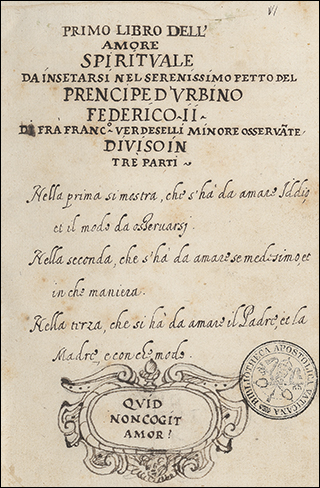 VI
PRIMO LIBRO DELL'
AMORE
SPIRITVALE
DA INSETARSI NEL SERENISSIMO PETTO DEL
PRENCIPE D'VRBINO
FEDERICO·II·
DI FRÀ FRANC.º VERDESELLI MINORE OSSERVÃTE·
DIVISO IN
TRE PARTI·
Nella prima si mostra, che s'hà da amare Iddio
et il modo da osseruarsi
Nella seconda, che s'hà da amare se medesimo, et
in che maniera.
Nella terza, che si hà da amare il Padre, et la
Madre, e con che modo.
QVID
NON COGIT
AMOR?
BIBLIOTHECA APOSTOLICA VATICANA